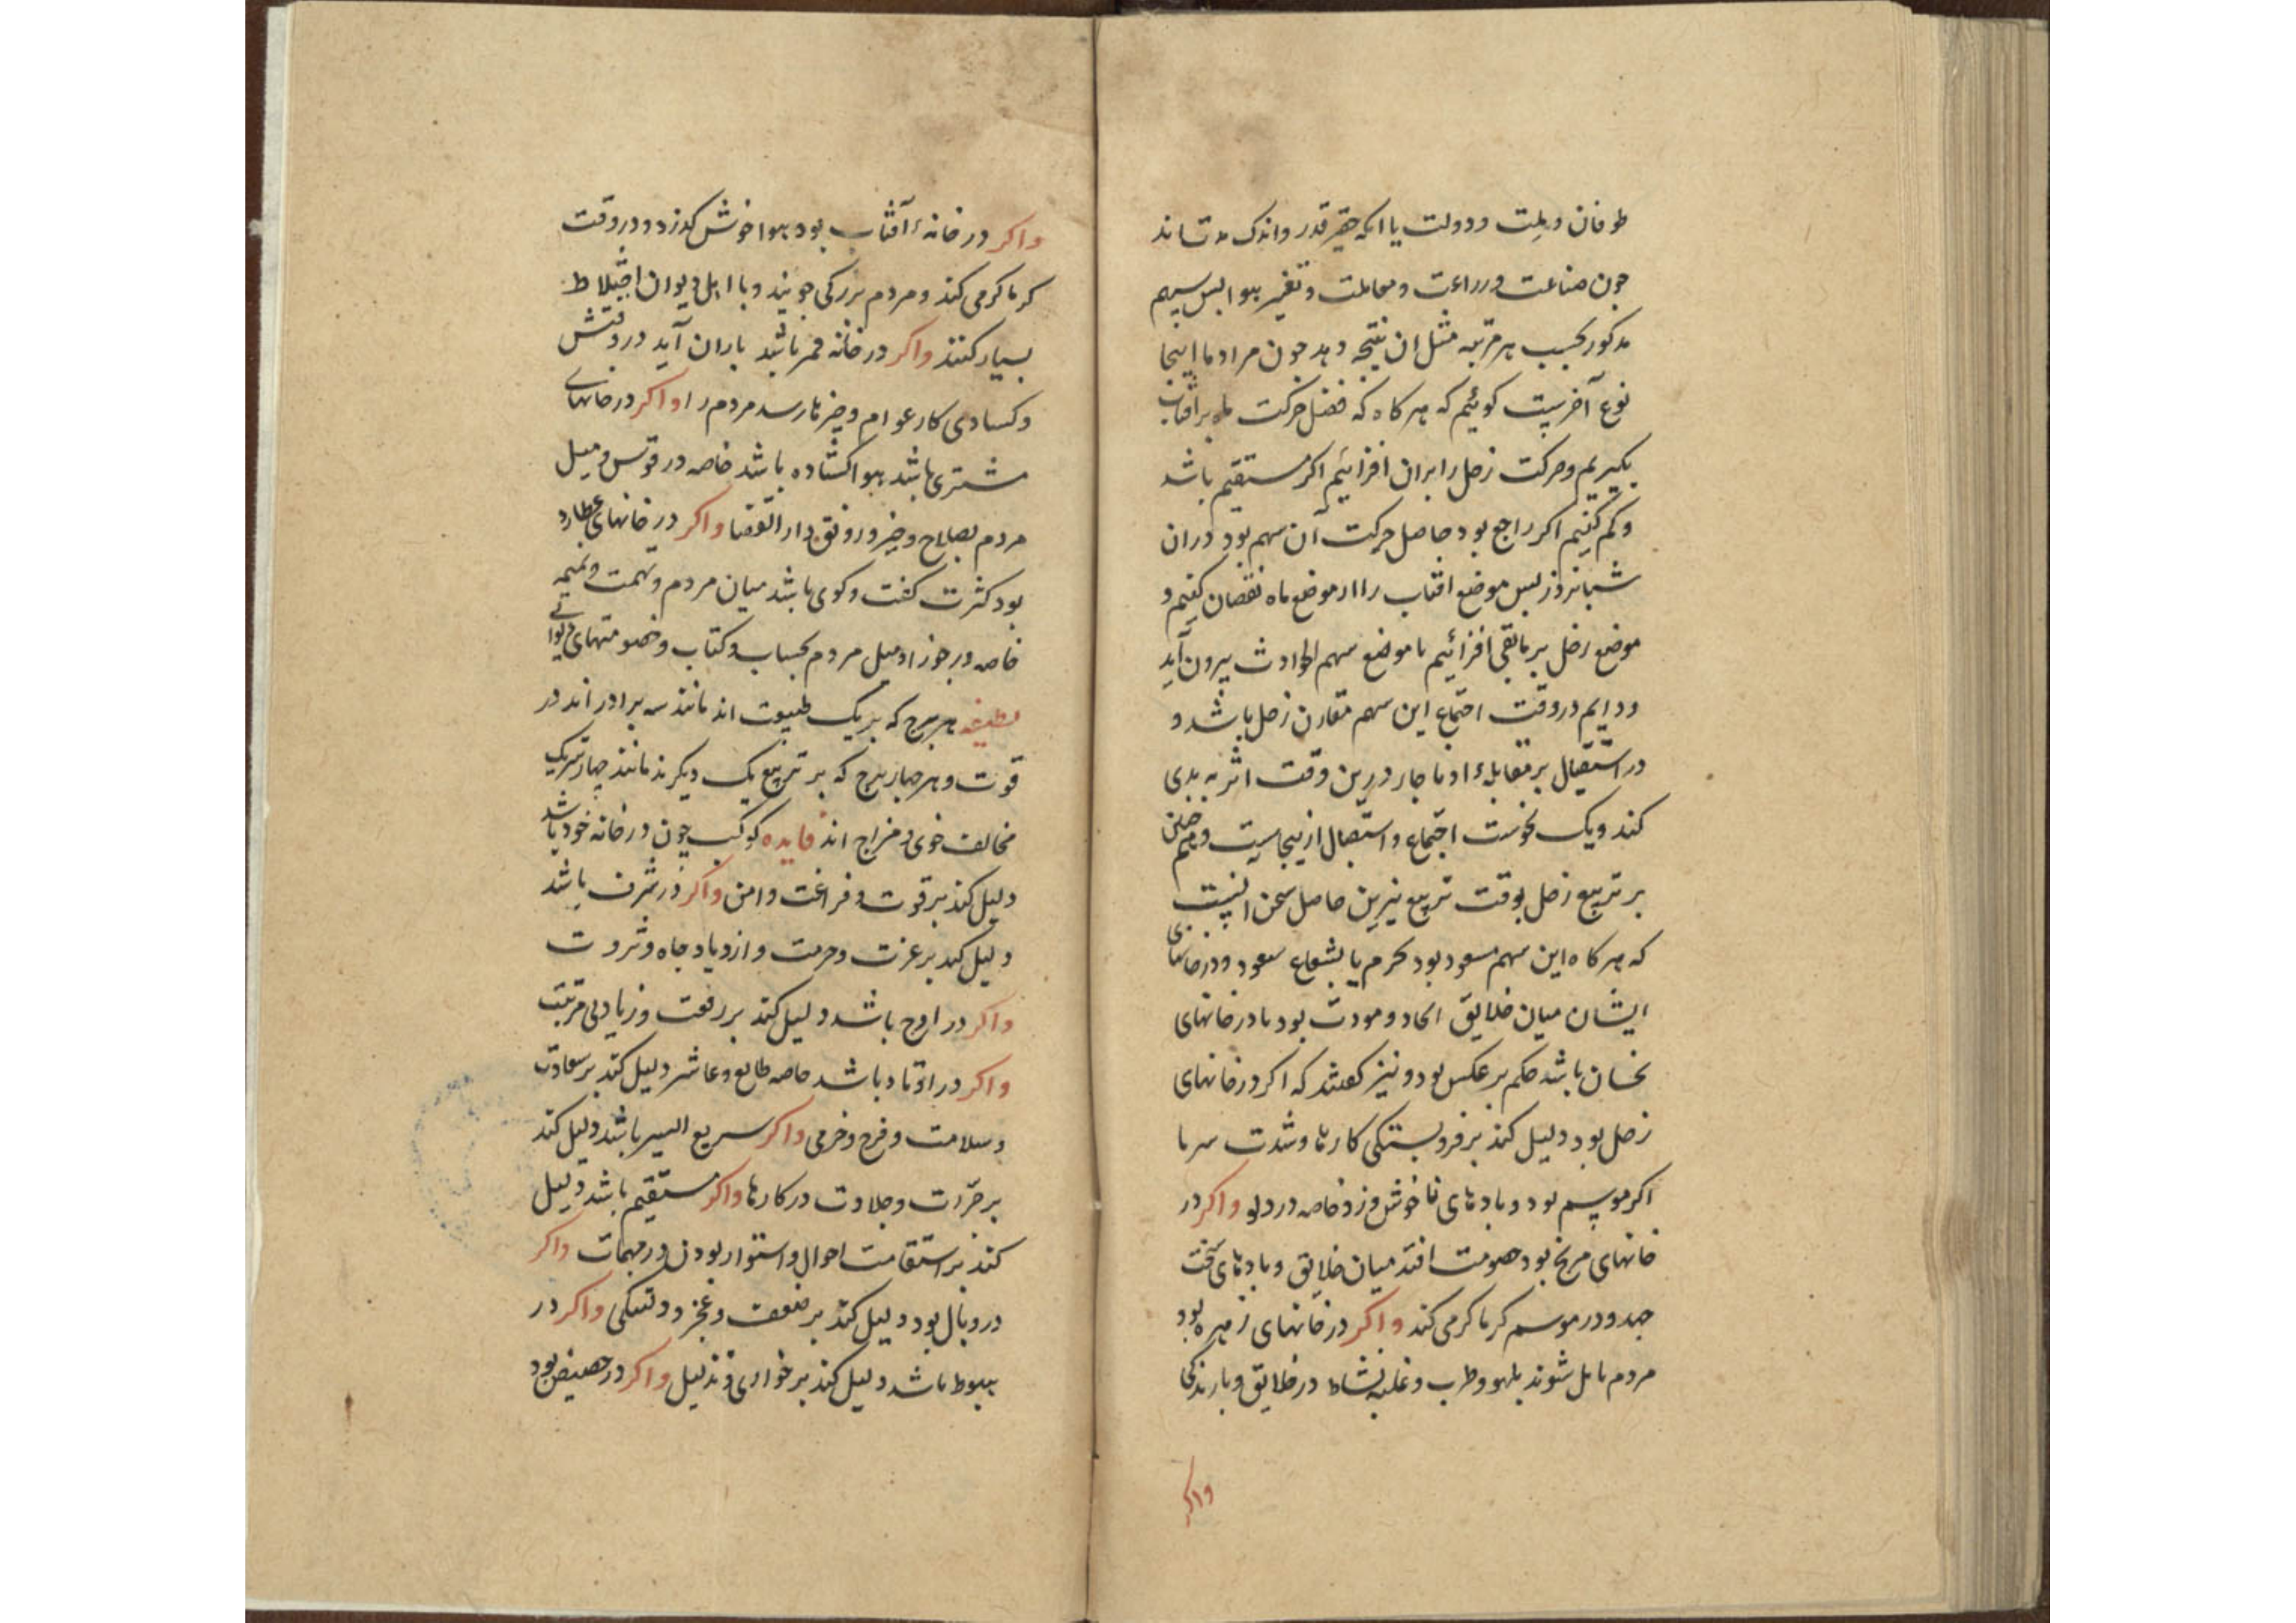 طوفان و ملت و دولت یا انکه حقیر قدر و اندک مدت اند
جون صناعت و زراعت و معاملت و تغییر هوا لبس سهم
مذکور بحسب هر مرتبه مثل ان نتیجه دهد جون مراد ما اینجا
نوع آخرست کوئیم که هرکاه که فضل حرکت ماه بر افتاب
بکیریم و حرکت زحل را بران افزائیم اکر مستقیم باشد
و کم کنیم اکر راجع بود حاصل حرکت آن سهم بود دران
شبانروز لبس موضع افتاب را از موضع ماه نقصان کنیم و
موضع زحل بر مابقی افزائیم تا موضع سهم الحوادث بیرون آید
و دایم در وقت اجتماع این سهم مقارن زحل باشد و
در استقبال بر مقابلهٔ او ناجار درین وقت اثر به بدی
کند و یک نحوست اجتماع و استقبال ازینجاست و همچنین
بر تربیع زحل بوقت تربیع نیرین حاصل سخن انست
که هرکاه این سهم مسعود بود بجرم یا بشعاع سعود و در خانهای
ایشان میان خلایق اتحاد و مودت بود یا در خانهای
نحسان باشد حکم بر عکس بود و نیز کفتند که اکر در خانهای
زحل بود دلیل کند بر فروبستکی کارها و شدت سرما
اکر موسم بود و بادهای ناخوش وزد خاصه در دلو واکر در
خانهای مریخ بود خصومت افتد میان خلایق و بادهای سخت
جهد و در موسم کرما کرمی کند واکر در خانهای زهره بود
مردم مایل شوند بلهو و طرب و غلبه نشاط در خلایق و بارندکی
واکر
واکر در خانهٔ آفتاب بود هوا خوش کذرد و در وقت
کرما کرمی کند و مردم بزرکی جویند و با اهل دیوان اختلاط
بسیار کنند واکر در خانه قمر باشد باران آید در وقتش
و کسادی کار عوام و خیرها رسد مردم را واکر در خانهای
مشتری باشد هوا کشاده باشد خاصه در قوس و میل
مردم بصلاح و خیر و رونق دار القضا واکر در خانهای عطارد
بود کثرت کفت و کوی باشد میان مردم و تهمت و نمیمه
خاصه در جوزا و میل مردم بحساب و کتاب و خصومتهای دیوانی
لطیفه هر برج که بر یک طبیعت اند مانند سه برادر اند در
قوت و هر چهار برج که بر تربیع یک دیکرند مانند چهار شریک
مخالف خوی و مزاج اند فایده کوکب چون در خانه خود باشد
دلیل کند بر قوت و فراغت و امن واکر در شرف باشد
دلیل کند بر عزت و حرمت و ازدیاد جاه و ثروت
واکر در اوج باشد دلیل کند بر رفعت و زیادتی مرتبت
واکر در اوتاد باشد خاصه طالع و عاشر دلیل کند بر سعادت
و سلامت و فرح و خرمی واکر سریع السیر باشد دلیل کند
بر جرات و جلادت در کارها واکر مستقیم باشد دلیل
کند بر استقامت احوال و استوار بودن در مهمات واکر
در وبال بود دلیل کند بر ضعف و عجز و دلتنکی واکر در
هبوط باشد دلیل کند بر خواری و تذلیل واکر در حضیض بود